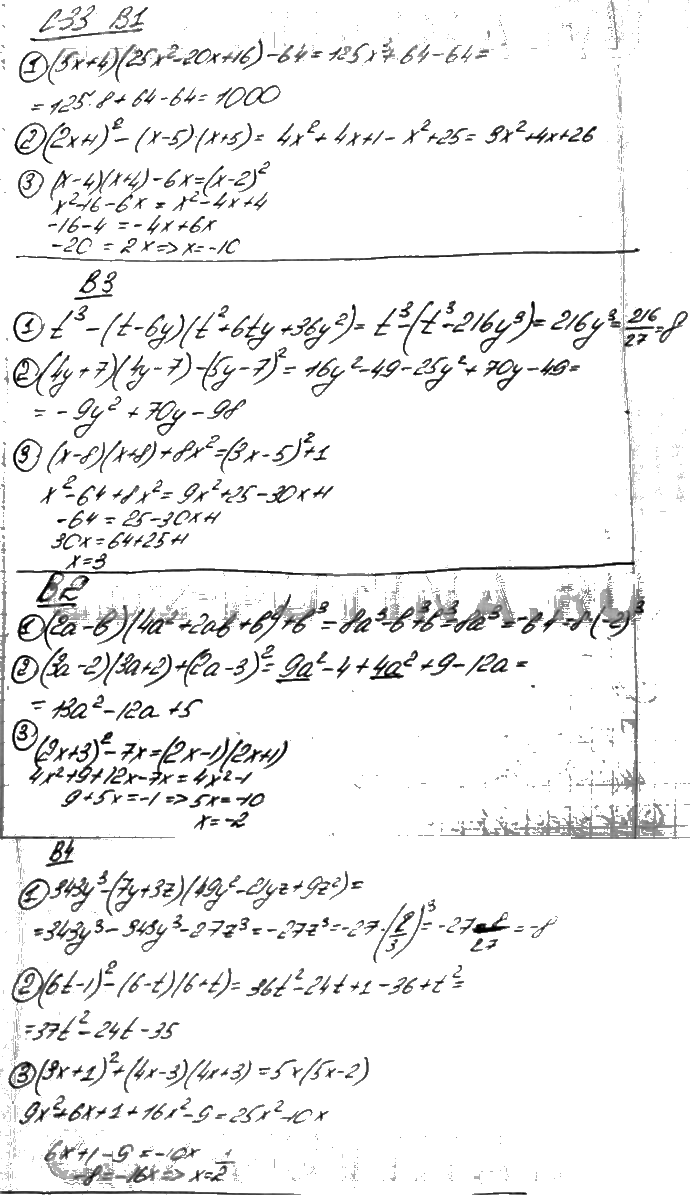 С33 В1
① (5x+4)(25x²-20x+16)-64=125x³+64-64=
=125·8+64-64=1000
② (2x+1)²-(x-5)·(x+5)= 4x²+4x+1-x²+25= 3x²+4x+26
③ (x-4)(x+4)-6x=(x-2)²
x²-16-6x = x²-4x+4
-16-4 =-4x+6x
-20 = 2x => x=-10
В3
① t³-(t-6y)(t²+6ty+36y²)= t³-(t³-216y³)= 216y³= 216/27=8
② (4y+7)(4y-7)-(5y-7)²= 16y²-49-25y²+70y-49=
= -9y²+70y-98
③ (x-8)(x+8)+8x²=(3x-5)²+1
x²-64+8x²= 9x²+25-30x+1
-64= 25-30x+1
30x= 64+25+1
x=3
В2
① (2a-b)(4a²+2ab+b²)+b³= 8a³-b³+b³=8a³=
② (3a-2)(3a+2)+(2a-3)²= 9a²-4+4a²+9-12a=
= 13a²-12a+5
③ (2x+3)²-7x=(2x-1)(2x+1)
4x²+9+12x-7x=4x²-1
9+5x=-1 => 5x=-10
x=-2
В4
① 343y³-(7y+3z)(49y²-21yz+9z²)=
=343y³-343y³-27z³=-27z³=-27·(2/3)³=-27·8/27=-8
② (6t-1)²-(6-t)(6+t)= 36t²-24t+1-36+t²=
=37t²-24t-35
③ (3x+1)²+(4x-3)(4x+3)=5x(5x-2)
9x²+6x+1+16x²-9=25x²-10x
6x+1-9=-10x
-8=-16x=> x=1/2